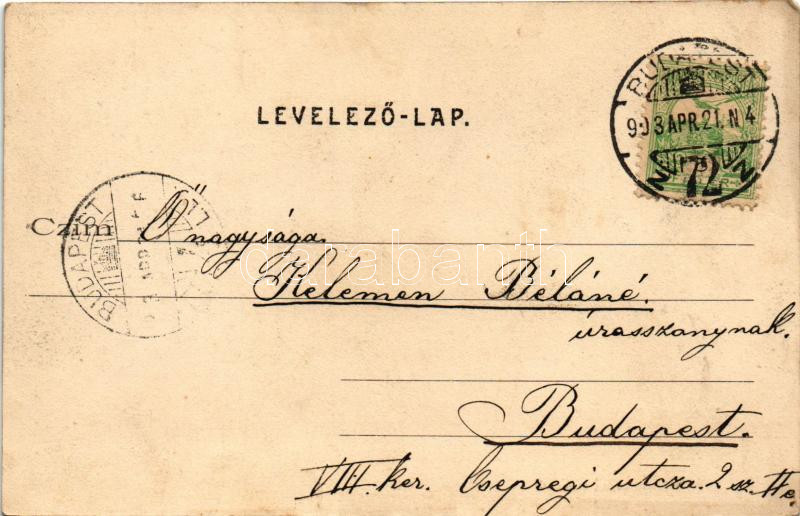 BUDAPEST
903 APR. 21. N 4
72
LEVELEZŐ-LAP.
BUDAPEST
Czim Ő nagysága
Kelemen Béláné.
úrasszonynak.
Budapest.
VIII. ker. Csepregi utcza. 2 sz. II e.
darabanth